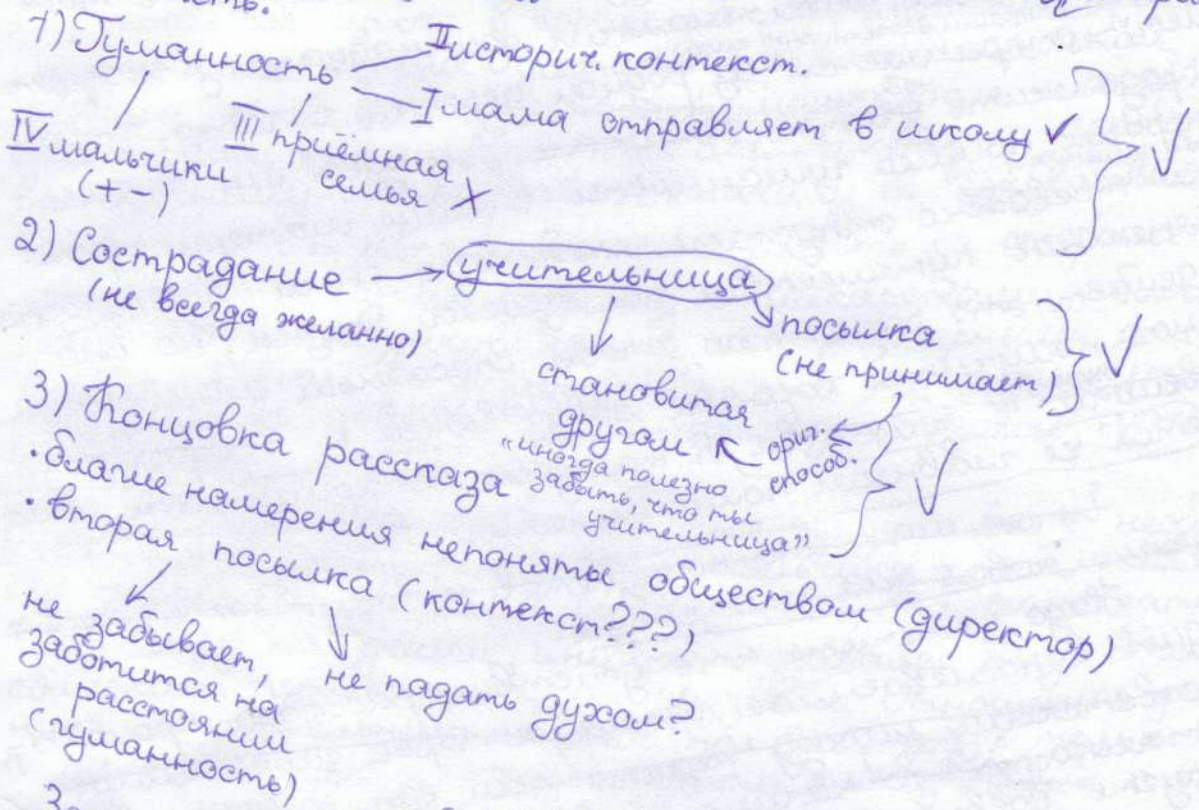 ность.
1) Гуманность
II историч. контекст.
I мама отправляет в школу ✓
IV мальчики
(+ −)
III приёмная
семья X
2) Сострадание → учительница
(не всегда желанно)
посылка
(не принимает)
становится
другом
"иногда полезно
забыть, что ты
учительница"
ориг.
способ.
3) Концовка рассказа
• благие намерения непоняты обществом (директор)
• вторая посылка (контекст???)
не забывает,
заботится на
расстоянии
(гуманность)
не падать духом?